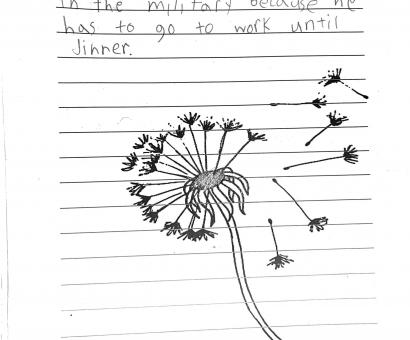 in the military because he
has to go to work until
Jinner.